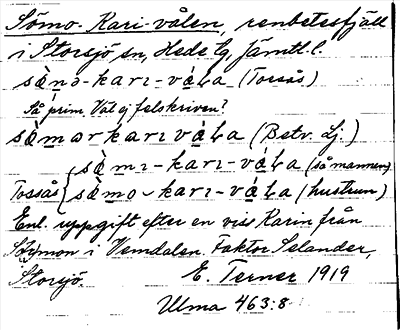 Sömo-Kari-vålen, renbetesfjäll
i Storsjö sn, Hede tg, Jämtl. l.
sò̀mo-karı-vå̀la (Torsås)
Så prim. Väl ej felskriven?
sò̀markarivå̀la (Betv. Lj.)
sò̀mı-karı-vå̀la (så mannen)
Tossås sò̀mo-karı-vå̀la (hustrun)
Enl. uppgift efter en viss Karin från
i Vemdalen. Faktor Selander,
Storsjö. E. Terner 1919
Ulma 463:8